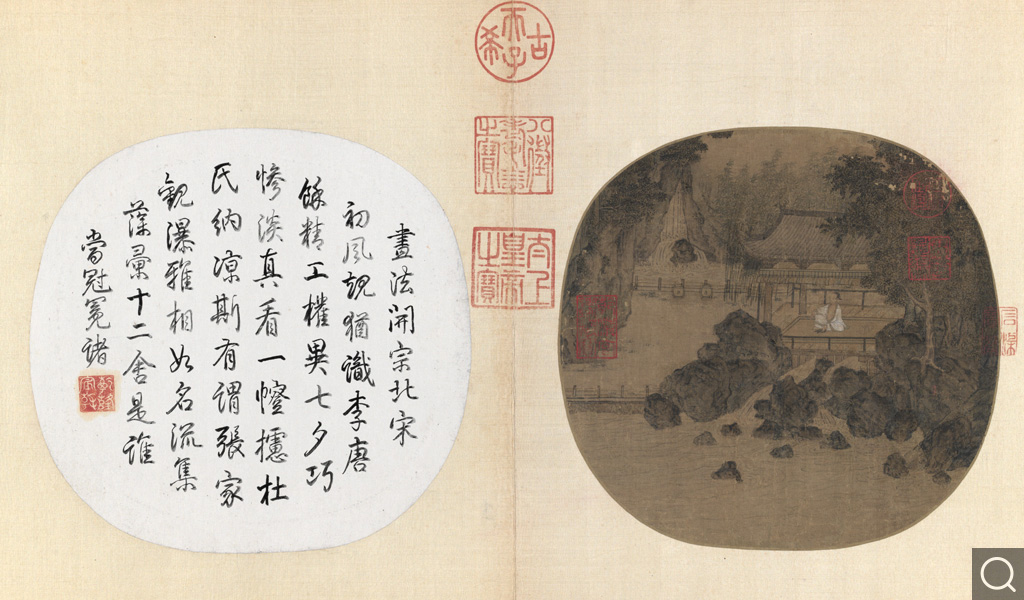 古希天子
八徵耄念之寶
太上皇帝之寶
畫法開宗北宋
初風規猶識李唐
餘精工權異七夕巧
慘淡真看一幰攄杜
氏納凉斯有謂張家
觀瀑雅相如名流集
藻彙十二舍是誰
當冠冕諸
乾隆宸翰